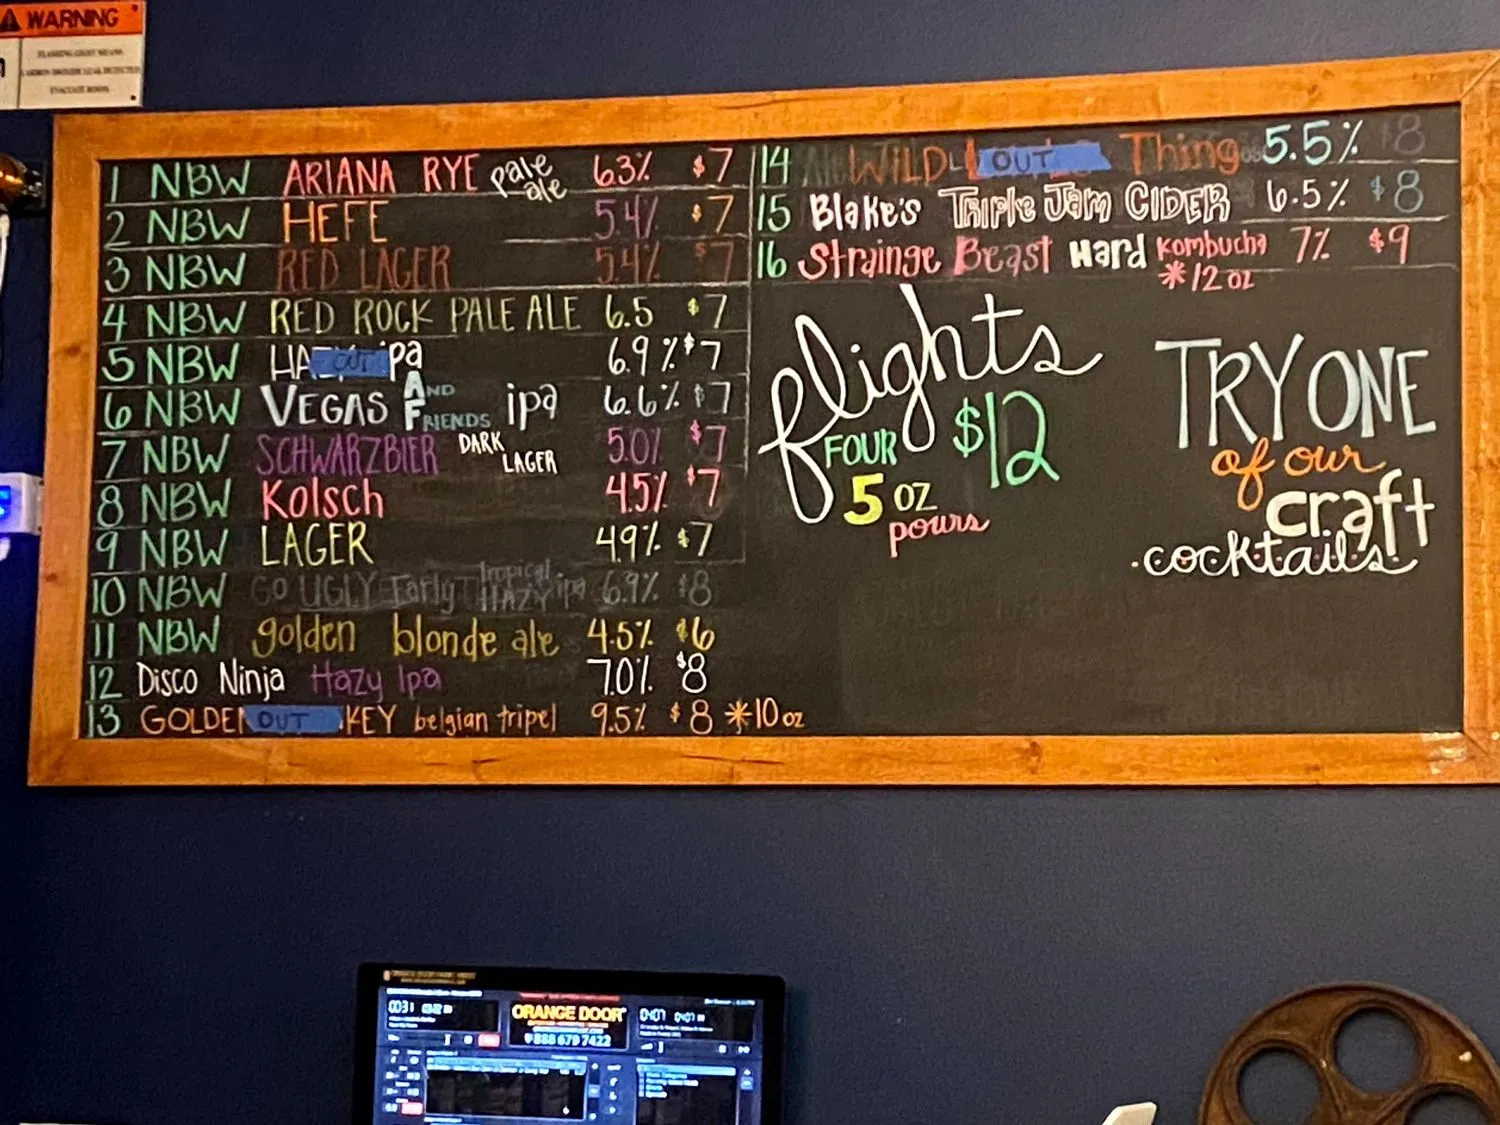 WARNING
FLASHING LIGHT MEANS
CARBON DIOXIDE LEAK DETECTED
EVACUATE ROOM
1 NBW ARIANA RYE pale ale 6.3% $7
2 NBW HEFE 5.4% $7
3 NBW RED LAGER 5.4% $7
4 NBW RED ROCK PALE ALE 6.5 $7
5 NBW HAZ OUT ipa 6.9% $7
6 NBW VEGAS AND FRIENDS ipa 6.6% $7
7 NBW SCHWARZBIER DARK LAGER 5.0% $7
8 NBW Kolsch 4.5% $7
9 NBW LAGER 4.9% $7
10 NBW GO UGLY Early Tropical HAZY ipa 6.9% $8
11 NBW golden blonde ale 4.5% $6
12 Disco Ninja Hazy Ipa 7.0% $8
13 GOLDEN OUT KEY belgian tripel 9.5% $8 *10 oz
14 WILD L OUT Thing 5.5% $8
15 Blake's Triple Jam CIDER 6.5% $8
16 Strainge Beast Hard Kombucha 7% $9
*12 oz
flights
FOUR $12
5 oz
pours
TRY ONE
of our
craft
cocktails
ORANGE DOOR
888 679 7422